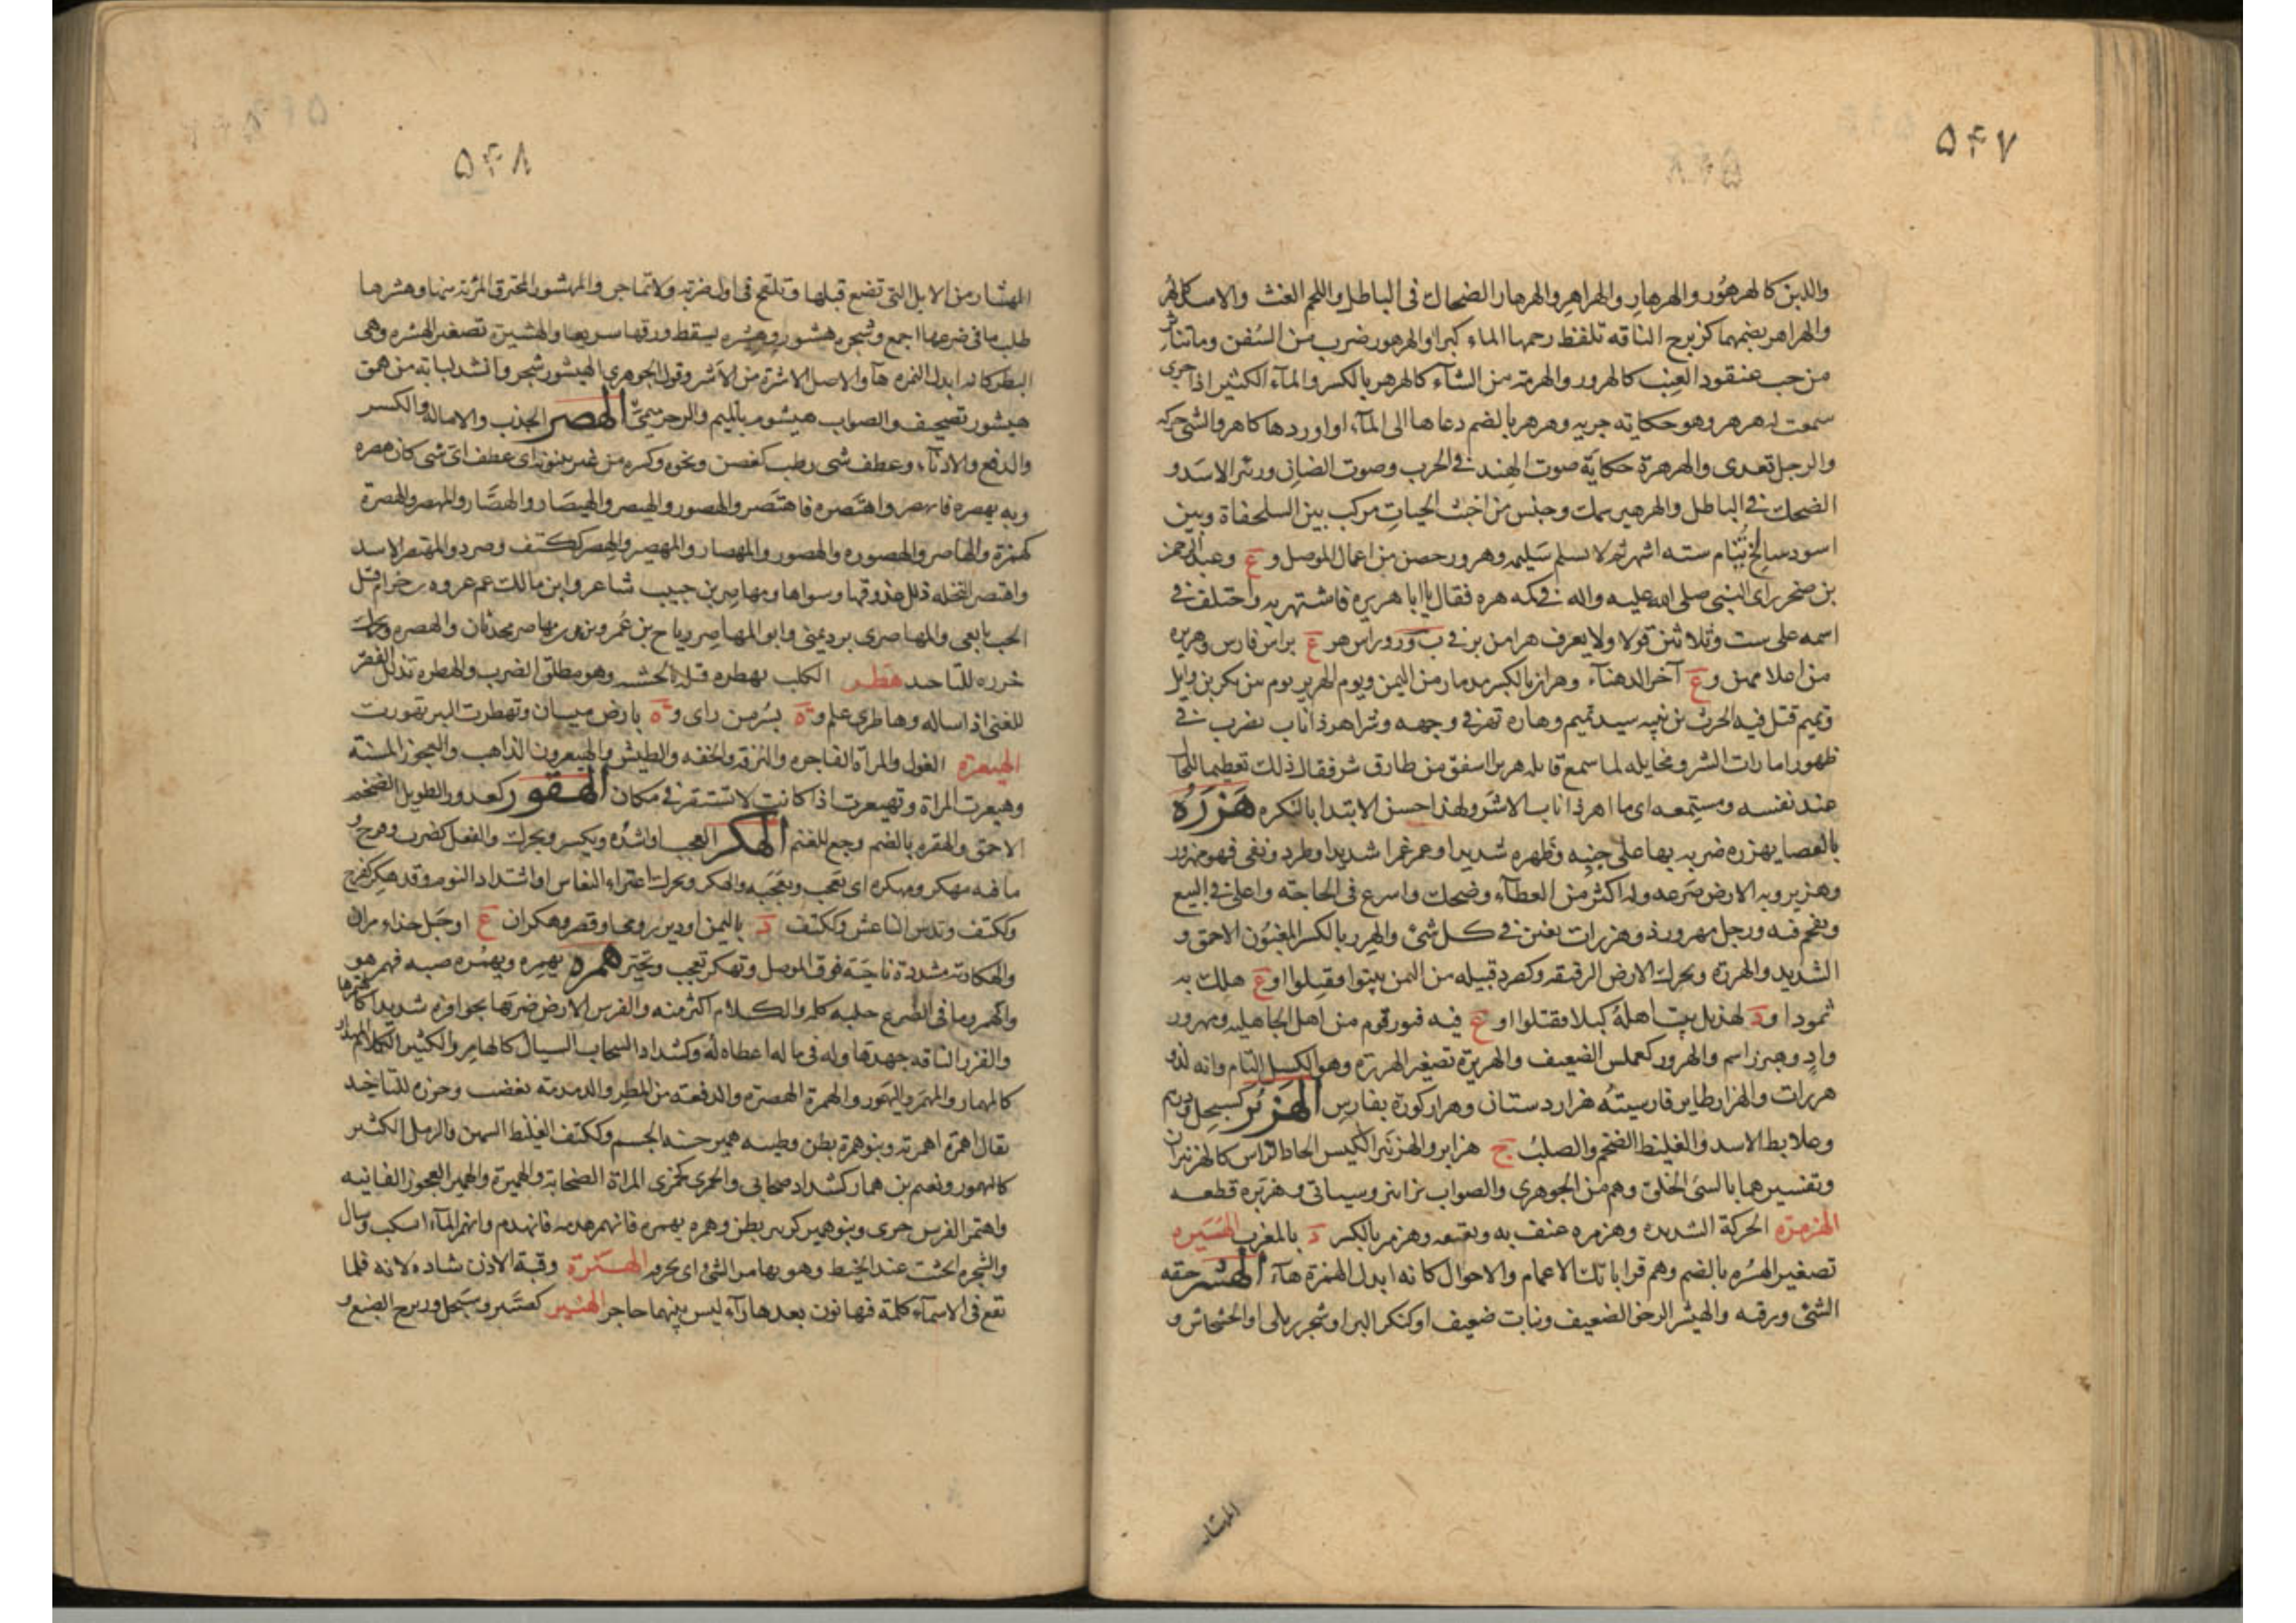 ۵۴۷
واللبن كالهرهور والهرهار والهراهر والهرهار الضحاك فى الباطل واللحم الغث والاسد كالهر
والهراهر بضمهما كزبرج الناقه تلفظ رحمها الماء كبرا والهرهور ضرب من السفن وماتناثر
من حب عنقود العنب كالهرور والهرمة من الشآء كالهرهر بالكسر والمآء الكثير اذا جرى
سمعت له هرهر وهو حكاية جريه وهرهر بالضم دعاها الى المآء او اوردها كاهر والشئ حركه
والرجل تعدى والهرهرة حكاية صوت الهند فى الحرب وصوت الضان وزئر الاسد و
الضحك فى الباطل والهرهير سمك وجنس من اخبث الحيات مركب بين السلحفاة وبين
اسود سالخ ينام سته اشهر ثم لا يسلم سليمه وهرور حصن من اعمال الموصل و ع وعبد الرحمن
بن صخر راى النبى صلى الله عليه واله فى كمه هره فقال يا ابا هريره فاشتهر به واختلف فى
اسمه على ست وثلاثين قولا ولا يعرف هرا من بر فى ب ر ر وراس هر ع براس فارس وهريره
من اعلامهن و ع آخر الدهنآء وهران بالكسر من ذمار من اليمن ويوم الهرير يوم بين بكر بن وايل
وتميم قتل فيه الحرث بن بيبه سيد تميم وهاره تهر فى وجهه وشر اهر ذا ناب يضرب فى
ظهور امارات الشر ومخايله لما سمع قايله هريرا اشفق من طارق شر فقال ذلك تعظيما للحال
عند نفسه ومستمعه اى ما اهر ذا ناب الا شر ولهذا حسن الابتدا بالنكره هَزَرَهُ
بالعصا يهزره ضربه بها على جنبه وظهره شديدا وغمز غمزا شديدا وطرد ونفى فهو مهزور
وهزير وبه الارض صرعه وله اكثر من العطآء وضحك واسرع فى الحاجة واغلى فى البيع
وتقحم فيه ورجل مهزر وذو هزرات يغبن فى كل شئ والهزر بالكسر المغبون الاحمق و
الشديد والهزرة ويحرك الارض الرقيقه وكصرد قبيله من اليمن بيتوا فقتلوا او ع هلك به
ثمود او د لهذيل بيت اهله ليلا فقتلوا او ع فيه قبور قوم من اهل الجاهليه ومهزور
واد وهيزر اسم والهزور كعملس الضعيف والهزيرة تصغير الهزرة وهو الكسل التام وانه لذو
هزرات والهزار طاير فارسيته هزار دستان وهزار كورة بفارس الهِزَبْر كسبحل ودرهم
وعلابط الاسد والغليظ الضخم والصلب ج هزابر والهزنبر الكيس الحاد الراس كالهزنبران
وتفسيرهما بالسئ الخلق وهم من الجوهرى والصواب بزايين وسياتى وهزبره قطعه
الهزمرة الحركة الشديده وهزمره عنف به وتعتعه وهزمر بالكسر د بالمغرب الهُسَيره
تصغير الهسره بالضم وهم قراباتك الاعمام والاخوال كانه ابدل الهمزة هآء الهَشْر خفه
الشئ ورقه والهيشر الرخو الضعيف ونبات ضعيف او كنكر البر او شجر رملى او الخشخاش و
المهشار
۵۴۸
المهشار من الابل التى تضع قبلها وتلقح فى اول ضربة ولا تماجن والمهشور المحترق الرئة منها وهشرها
حلب ما فى ضرعها اجمع وشجره هشور وهشره يسقط ورقها سريعا والهشيرة تصغير الهشره وهى
البطر كانه ابدل الهمزه هآء والاصل الاشرة من الاشر وقول الجوهرى الهيشور شجر وانشد لبابة من همق
هيشور تصحيف والصواب هيشوم بالميم والرجز ميمى الهَصْر الجذب والامالة والكسر
والدفع والادنآء وعطف شئ رطب كغصن ونحوه وكسره من غير بينونه اى عطف اى شئ كان هصره
وبه يهصره فانهصر واهتصره فاهتصر والهصور والهيصر والهيصار والهصار والمهصر والهصرة
كهمزة والهاصر والهصوره والهصور والمهصار والمهصير والهصر ككتف وصرد والمهتصر الاسد
واهتصر النخله ذلل عذوقها وسواها ومهاصر بن حبيب شاعر وابن مالك عم عروه بن حزام قتل
الحب تابعى والمهاصرى برد يمنى وابو المهاصر رياح بن عمرو ويزيد بن مهاصر محدثان والهصره ويحرك
خرزه للتاخيذ هَطَر الكلب يهطره قتله بالخشب وهو مطلق الضرب والهطره تذلل الفقير
للغنى اذا ساله وهاطرى علم و ة بسر من راى و ة بارض ميسان وتهطرت البئر تهورت
الهيعرة الغول والمراة الفاجره والنزقه والخفه والطيش والهيعرون الداهب والعجوز المسنة
وهيعرت المراة وتهيعرت اذا كانت لا تستقر فى مكان الهَقَوَّر كعذور الطويل الضخم
الاحمق والهقره بالضم وجع للغنم الهَكْر العجب او اشده ويكسر ويحرك والفعل كضرب وفرح و
ما فيه مهكر ومهكره اى تعجب ومعجبه والهكر ويحرك اعتراء النعاس او اشتداد النوم وقد هكر كفرح
وككتف وندس الناعس وككتف د باليمن او دير رومى او قصر وهكران ع او جبل حذاء مران
والهكارية مشددة ناحية فوق الموصل وتهكر تعجب وتحير هَمَرَهُ يهمره ويهمره صبه فهمر هو
وانهمر وما فى الضرع حلبه كله والكلام اكثر منه والفرس الارض ضربها بحوافره شديدا كاهتمرها
والغزر الناقه جهدها وله فى ماله اعطاه له وكشداد السحاب السيال كالهامر والكثير الكلام المهذار
كالمهمار والمهمر واليهمور والهمرة الهصرة والدفعة من المطر والدمدمة بغضب وخرزه للتاخيذ
يقال اهمرة اهمريه وبنو همرة بطن وظبيه همير حسنه الجسم وككتف الغليظ السمين والرمل الكثير
كاليهمور ونعيم بن همار كشداد صحابى والهمرى كجمزى المراة الصخابة والهميرة والهمير العجوز الفانيه
واهتمر الفرس جرى وبنو همير كزبير بطن وهمره يهمره فانهمر هدمه فانهدم وانهمر المآء انسكب وسال
والشجره انحتت عند الخبط وهو يهامر الشئ اى يجرم الهَنْرَة وقبة الاذن شاده لانه قلما
تقع فى الاسمآء كلمة فيها نون بعدها رآء ليس بينهما حاجز الهِنَّبْر كصنبر وسبحل وزبرج الضبع و